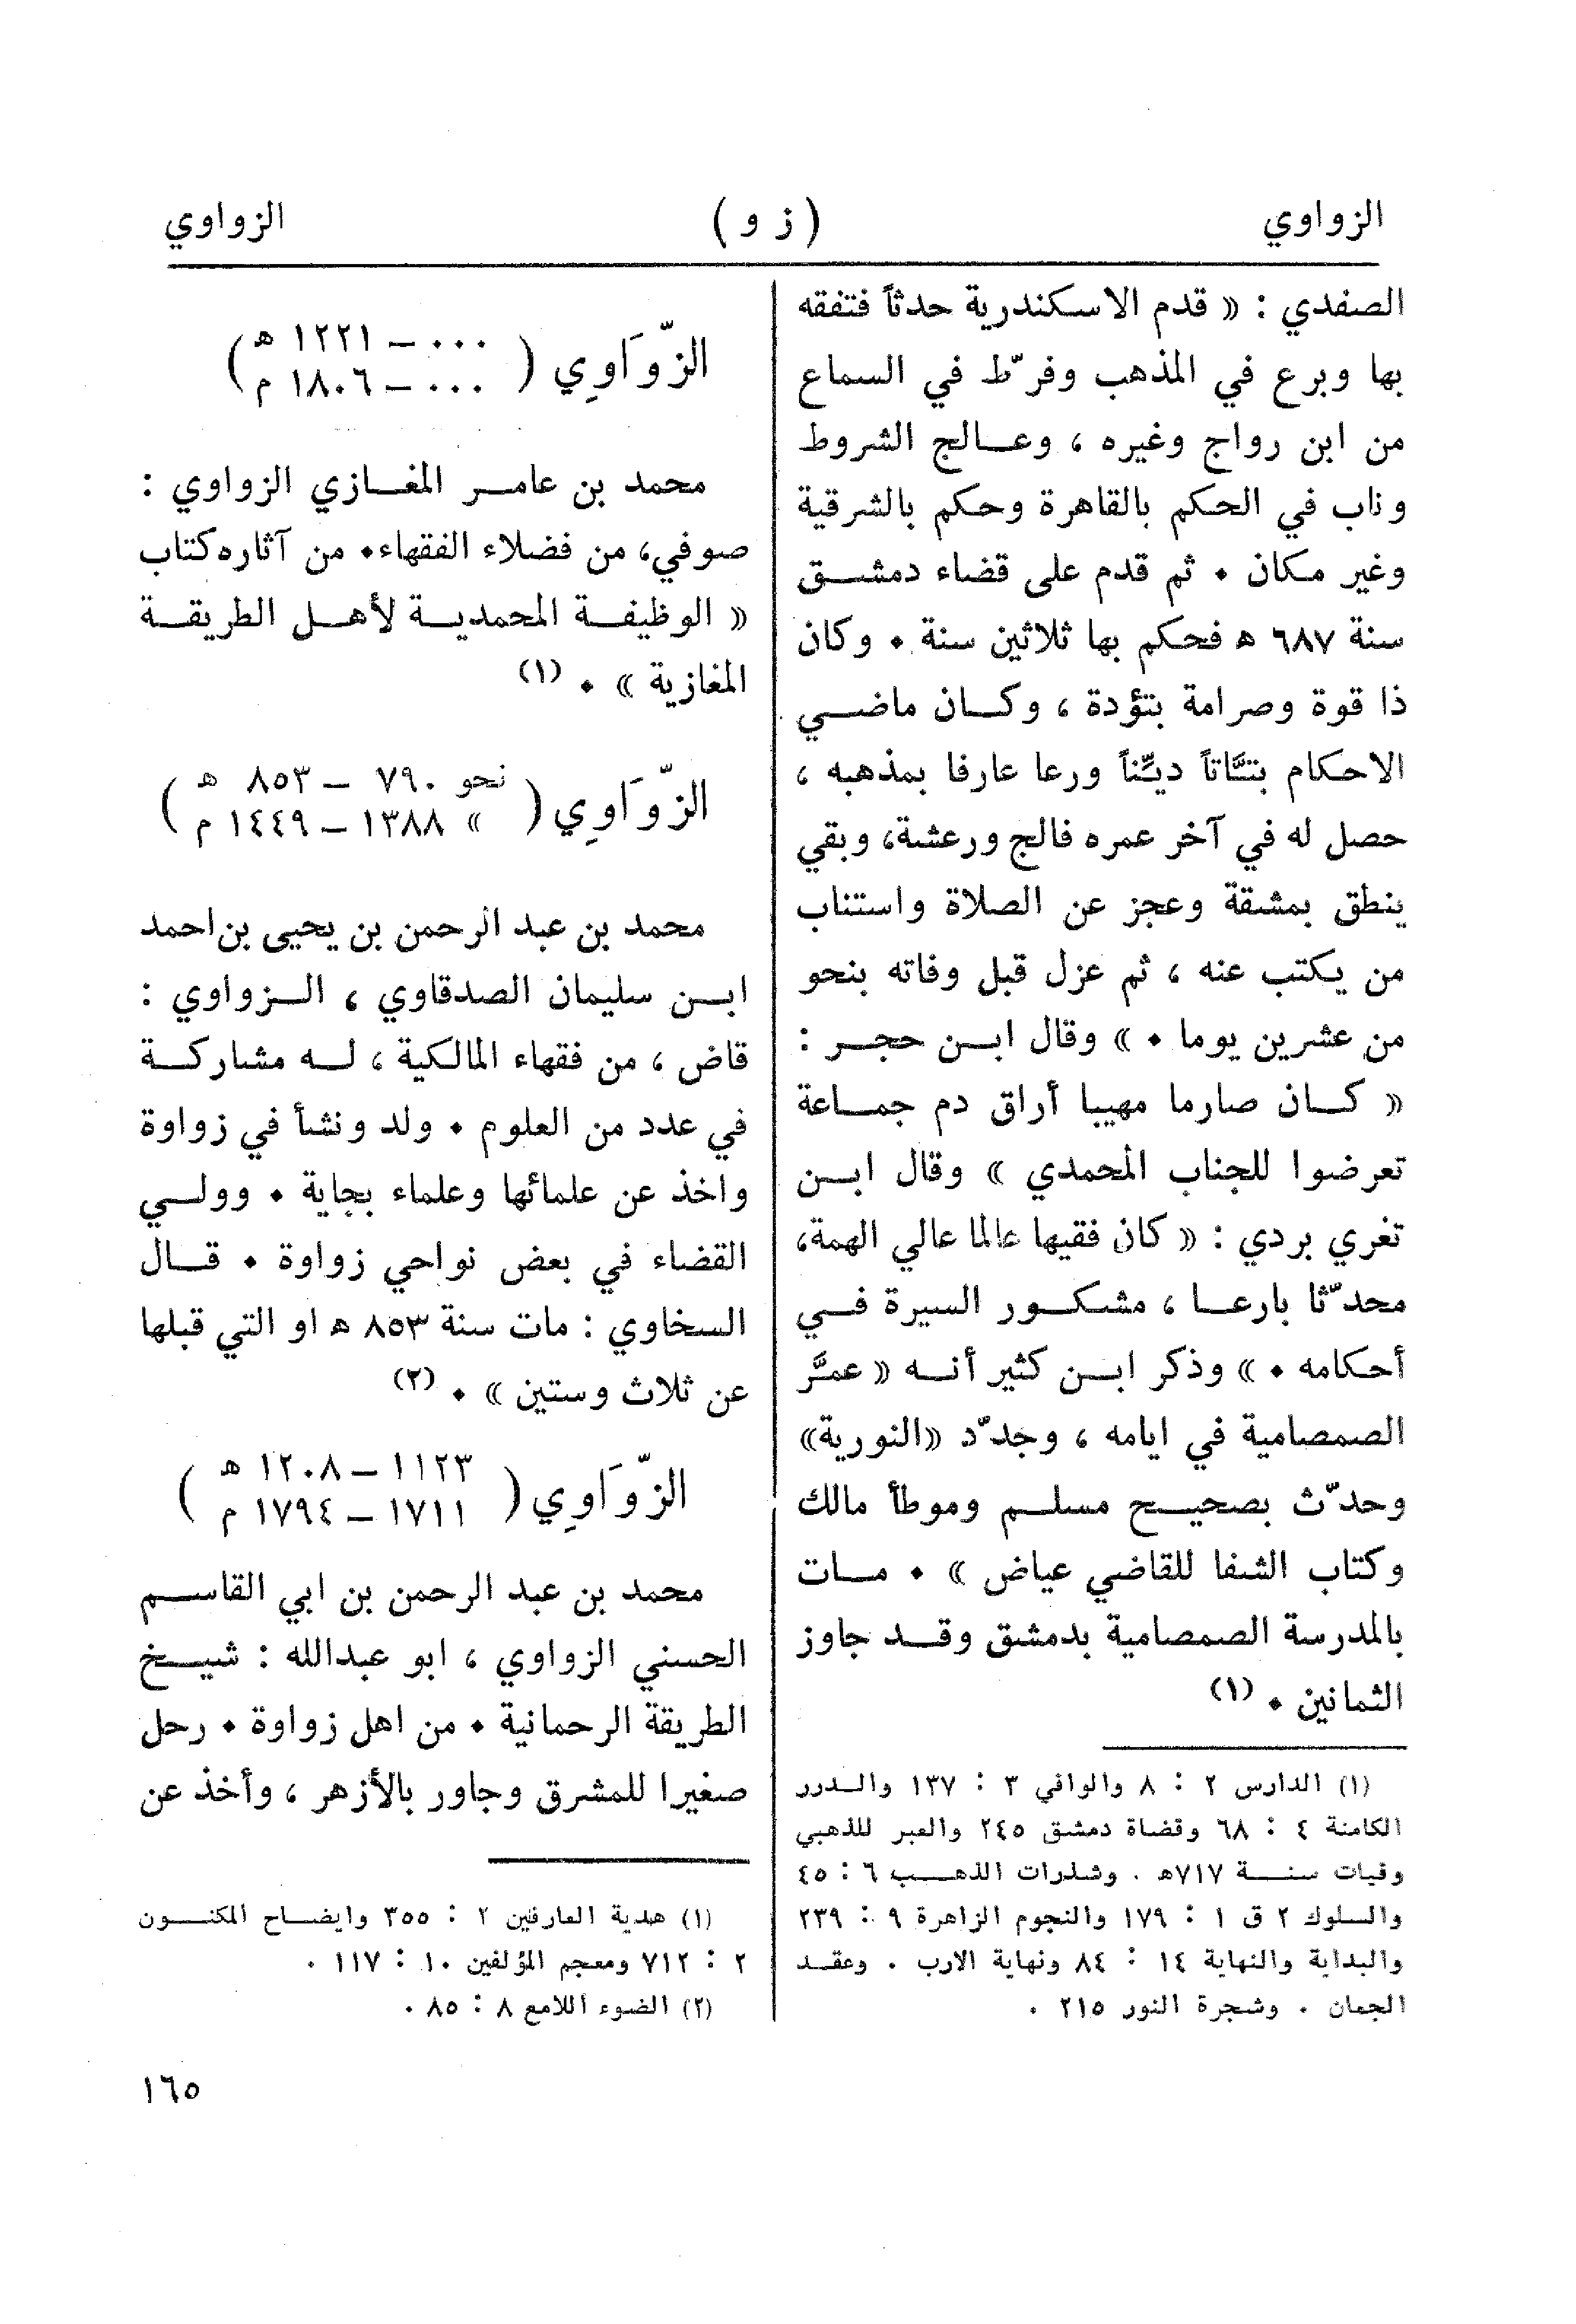 الزواوي
( ز و )
الزواوي
الصفدي : « قدم الاسكندرية حدثاً فتفقه
بها وبرع في المذهب وفرّط في السماع
من ابن رواج وغيره ، وعالج الشروط
وناب في الحكم بالقاهرة وحكم بالشرقية
وغير مكان ٠ ثم قدم على قضاء دمشق
سنة ٦٨٧ هـ فحكم بها ثلاثين سنة ٠ وكان
ذا قوة وصرامة بتؤدة ، وكان ماضي
الاحكام بتـَّاتاً ديـِّناً ورعا عارفا بمذهبه ،
حصل له في آخر عمره فالج ورعشة، وبقي
ينطق بمشقة وعجز عن الصلاة واستناب
من يكتب عنه ، ثم عزل قبل وفاته بنحو
من عشرين يوما ٠ » وقال ابن حجر :
« كان صارما مهيبا أراق دم جماعة
تعرضوا للجناب المحمدي » وقال ابن
تغري بردي : « كان فقيها عالما عالي الهمة،
محدّثا بارعا ، مشكور السيرة في
أحكامه ٠ » وذكر ابن كثير أنه « عمَّر
الصمصامية في ايامه ، وجدّد «النورية»
وحدّث بصحيح مسلم وموطأ مالك
وكتاب الشفا للقاضي عياض » ٠ مات
بالمدرسة الصمصامية بدمشق وقد جاوز
الثمانين ٠ (١)
(١) الدارس ٢ : ٨ والوافي ٣ : ١٣٧ والدرر
الكامنة ٤ : ٦٨ وقضاة دمشق ٢٤٥ والعبر للذهبي
وفيات سنة ٧١٧هـ . وشذرات الذهب ٦ : ٤٥
والسلوك ٢ ق ١ : ١٧٩ والنجوم الزاهرة ٩ : ٢٣٩
والبداية والنهاية ١٤ : ٨٤ ونهاية الارب . وعقد
الجمان . وشجرة النور ٢١٥ .
الزّوَاوِي ( ٠٠٠ – ١٢٢١ هـ
٠٠٠ – ١٨٠٦ م )
محمد بن عامر المغازي الزواوي :
صوفي، من فضلاء الفقهاء٠ من آثاره كتاب
« الوظيفة المحمدية لأهل الطريقة
المغازية » ٠ (١)
الزّوَاوِي ( نحو ٧٩٠ – ٨٥٣ هـ
» ١٣٨٨ – ١٤٤٩ م )
محمد بن عبد الرحمن بن يحيى بن احمد
ابن سليمان الصدقاوي ، الزواوي :
قاض ، من فقهاء المالكية ، له مشاركة
في عدد من العلوم ٠ ولد ونشأ في زواوة
واخذ عن علمائها وعلماء بجاية ٠ وولي
القضاء في بعض نواحي زواوة ٠ قال
السخاوي : مات سنة ٨٥٣ هـ او التي قبلها
عن ثلاث وستين » ٠ (٢)
الزّوَاوِي ( ١١٢٣ – ١٢٠٨ هـ
١٧١١ – ١٧٩٤ م )
محمد بن عبد الرحمن بن ابي القاسم
الحسني الزواوي ، ابو عبدالله : شيخ
الطريقة الرحمانية ٠ من اهل زواوة ٠ رحل
صغيرا للمشرق وجاور بالأزهر ، وأخذ عن
(١) هدية العارفين ٢ : ٣٥٥ وايضاح المكنون
٢ : ٧١٢ ومعجم المؤلفين ١٠ : ١١٧ .
(٢) الضوء اللامع ٨ : ٨٥ .
١٦٥